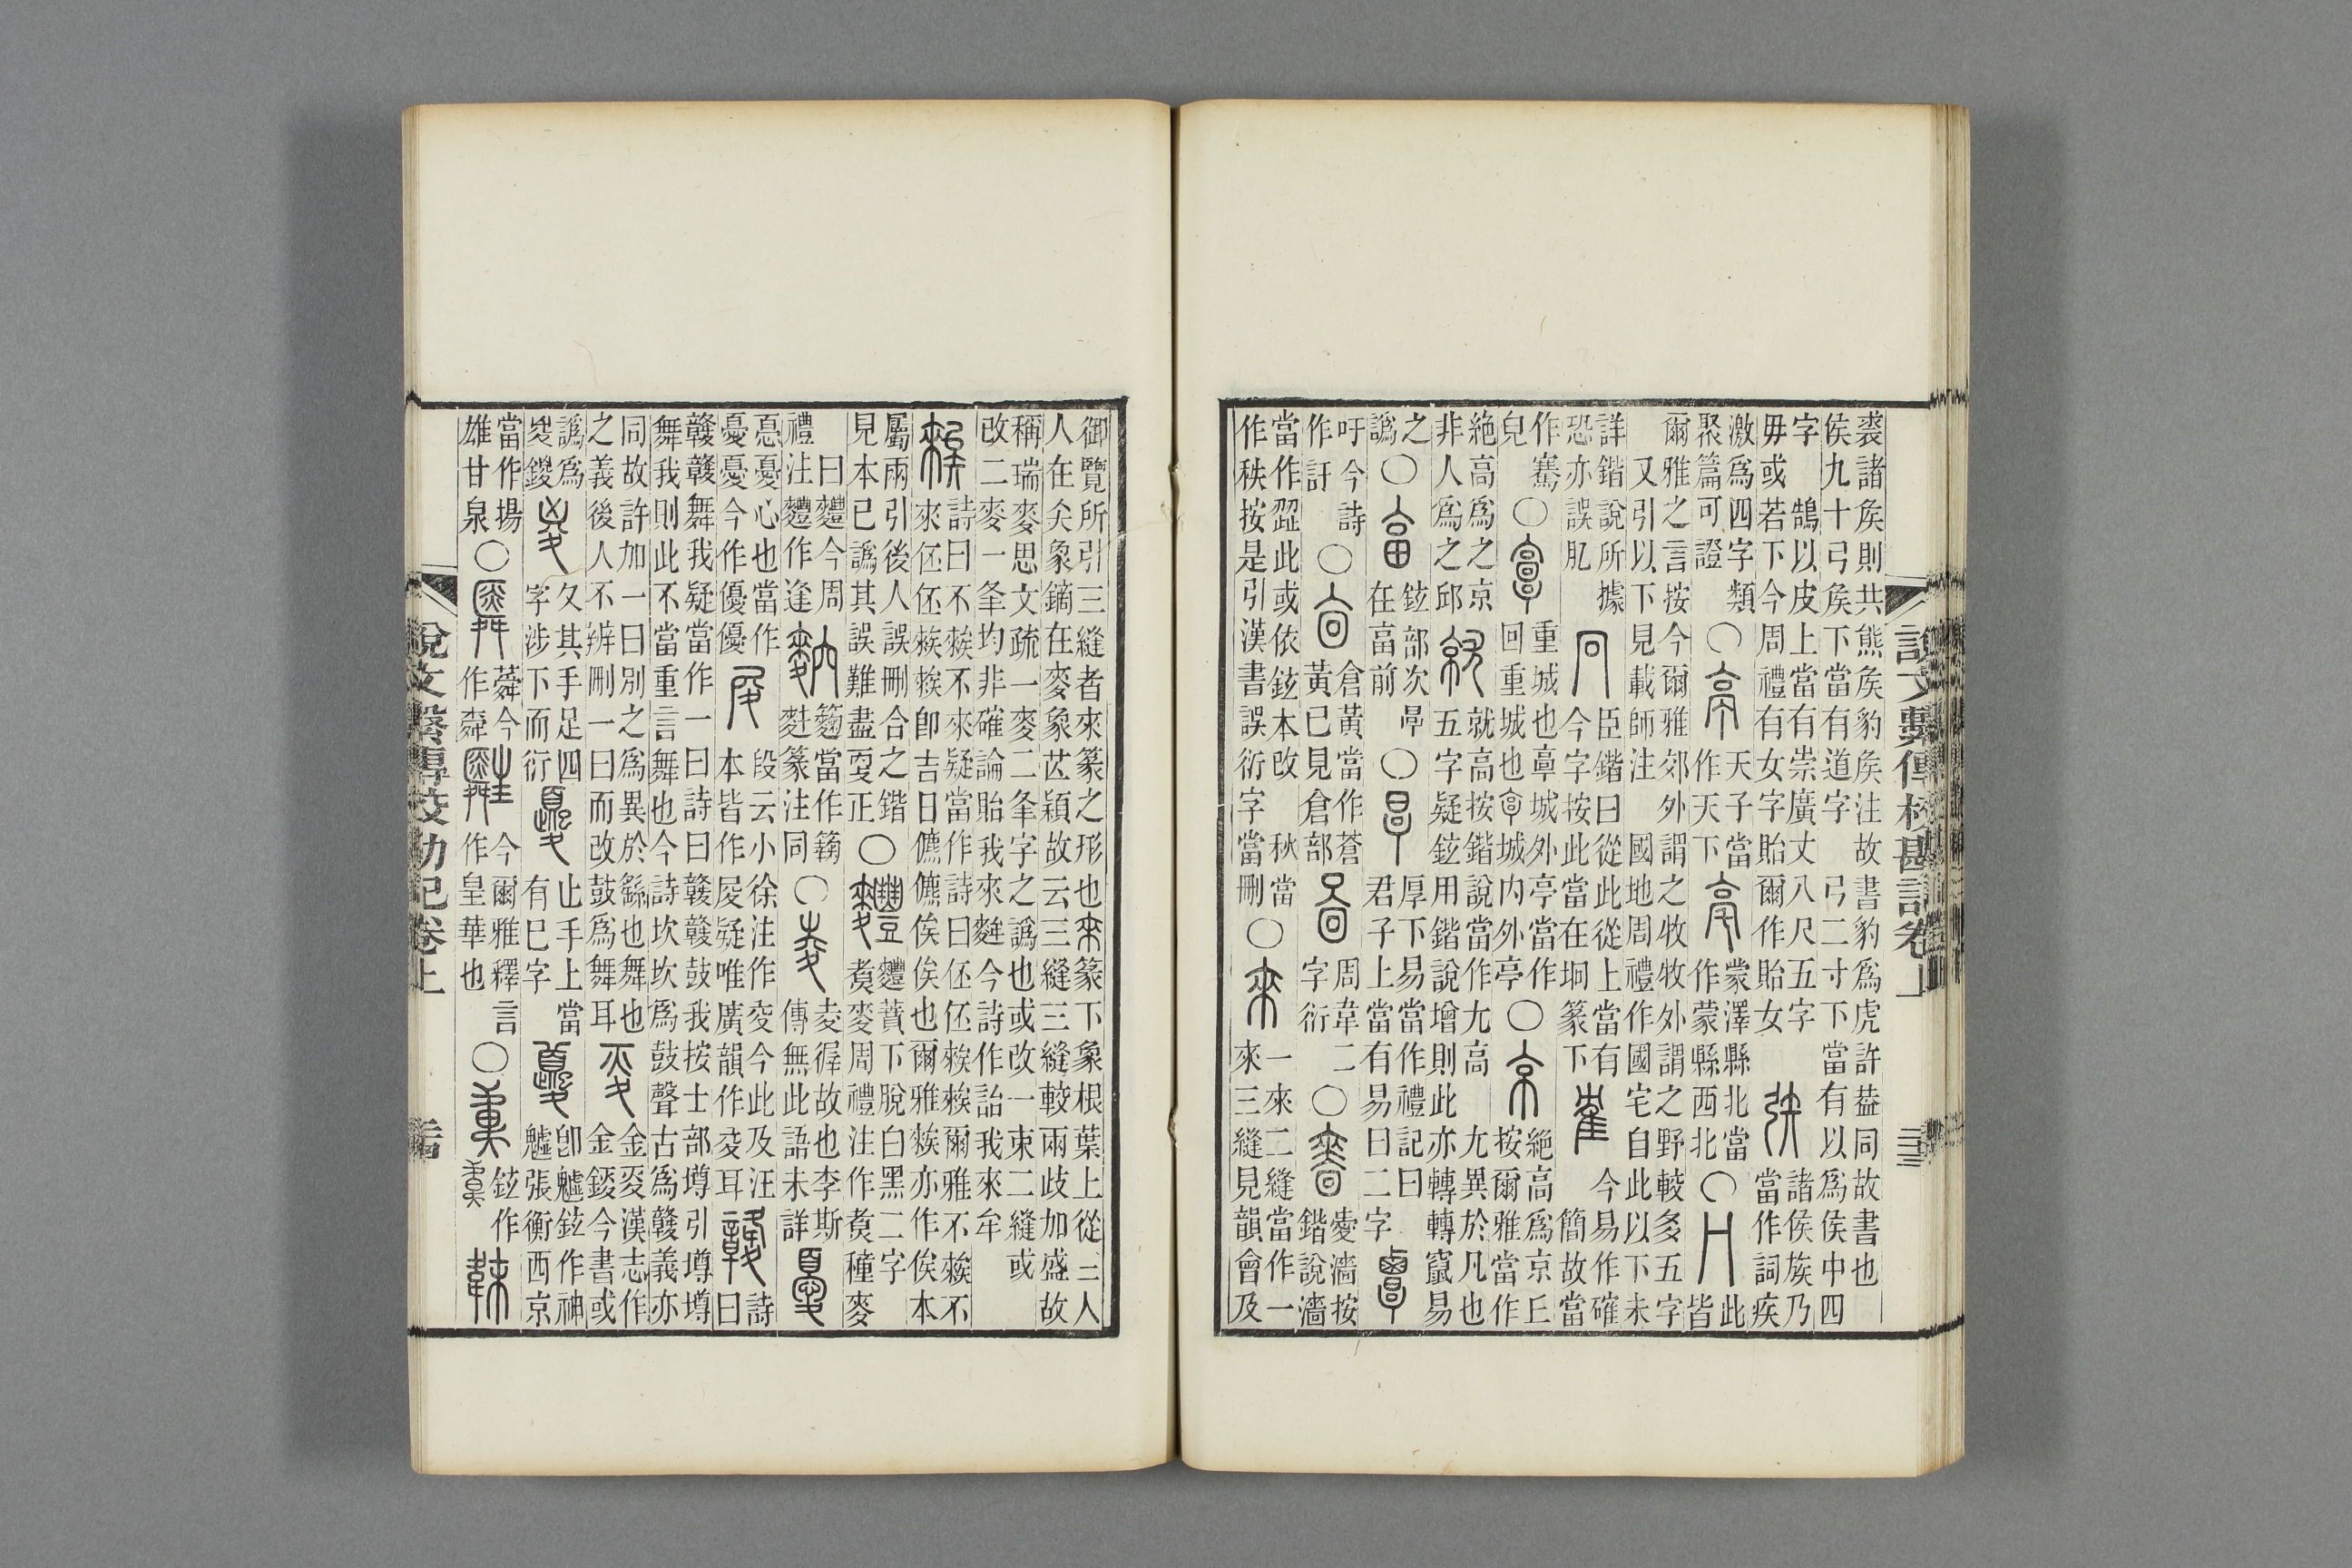 裘諸侯則共熊侯豹侯注故書豹爲虎許葢同故書也
侯九十弓侯下當有道字 弓二寸下當有以爲侯中四
字 鵠以皮上當有崇廣丈八尺五字
毋或若下今周禮有女字貽爾作貽女 諸侯族乃當作詞疾
激爲四字類聚篇可證○亭天子當作天下亳蒙澤縣北當作蒙縣西北○冂此皆
爾雅之言按今爾雅郊外謂之牧牧外謂之野較多五字
又引以下見載師注 國地周禮作國宅自此以下未
詳鍇說所據恐亦誤肊冋臣鍇曰從此從上當有今字按此當在坰篆下隺今易作確簡故當
作騫皃○𩫏重城也𩫏城外亭當作回重城也𩫏城内外亭○京絶高爲京丘按爾雅當作
絶高爲之京非人爲之邱就就高按鍇說當作尢高 尢異於凡也五字疑鉉用鍇說增則此亦轉轉竄易
之譌○畗鉉部次𣆪在畗前○𣆪厚下易當作禮記曰君子上當有易曰二字覃
吁今詩作訏○㐭倉黃當作蒼黃已見倉部啚周韋二字衍○嗇濇按鍇說濇
當作澀此或依鉉本改 秋當作秩按是引漢書誤衍字當刪○來一來二縫當作一來三縫見韻會及
說文繫傳校勘記卷上 三三
御覽所引三縫者來篆之形也來篆下象根葉上從三人
人在尖象鏑在麥象芒穎故云三縫三縫較兩歧加盛故
稱瑞麥思文疏一麥二夆字之譌也或改一朿二縫或
改二麥一夆均非確論貽我來麰今詩作詒我來牟
𥎦詩曰不𥎦不來疑當作詩曰伾伾𥎦𥎦爾雅不𥎦不來伾伾𥎦𥎦卽吉日儦儦俟俟也爾雅𥎦亦作俟本
屬兩引後人誤刪合之鍇見本已譌其誤難盡㪅正○麷麷蕡下脫白黑二字𪍿麥周禮注作𪍿種麥
曰麷今周禮注麷作逢䴱麴當作𥶶麩篆注同○夌夌徲故也李斯傳無此語未詳憂
㥑憂心也當作憂憂今作優優𡰥段云小徐注作㕙今此及汪本皆作𡰥疑唯廣韻作㕙耳竷詩曰
竷竷舞我疑當作一曰詩曰竷竷鼓我按士部墫引墫墫
舞我則此不當重言舞也今詩坎坎爲鼓聲古爲竷義亦
同故許加一曰別之爲異於繇也舞也之義後人不辨刪一曰而改鼓爲舞耳㚇金㚇漢志作金鋄今書或
譌爲㚇鍐夊其手足四字涉下而衍夒止手上當有巳字夔卽魖鉉作神魖張衡西京
當作揚雄甘泉○䑞蕣今作舜𦾓今爾雅釋言作皇華也○韋鉉作韎
說文繫傳校勘記卷上 三四